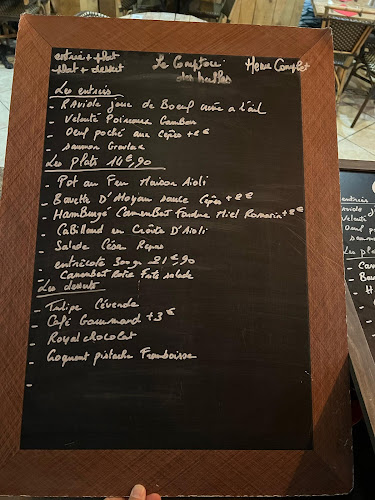 entrée + plat
plat + dessert
Le Comptoir
des halles
Menu Complet
Les entrées
- RAviole joue de Boeuf crème a l'ail
- Velouté Poireaux Cambon
- Oeuf poché aux cepes + 2€
- saumon Gravlax
Les plats 14€,90
- Pot au Feu Maison Aioli
- Bavette D'Aloyau sauce Cepes + 2€
- HamBurgé CamemBert Fondue Miel Romarin + 2€
- CaBillaud en Croûte D'Aioli
- Salade César Repas
- entrécote 300gr 21€,90
- CamemBert Rotie Frite salade
Les desserts
- Tulipe Cévenole
- Café Gourmand + 3€
- Royal chocolat
- Croquent pistache Framboisse
-